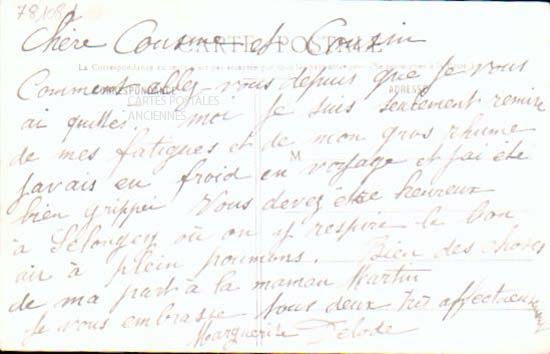 78108
Chère Cousine et Cousin
CARTE POSTALE
Comment allez vous depuis que je vous
CORRESPONDANCE
CARTES POSTALES
ANCIENNES
ai quittés. moi je suis seulement remise
de mes fatigues et de mon gros rhume
M
j'avais eu froid en voyage et j'ai été
bien grippée Vous devez être heureux
à Selongey où on y respire le bon
air à plein poumons. Bien des choses
de ma part à la maman Martin
Je vous embrasse tous deux très affectueusement
Marguerite